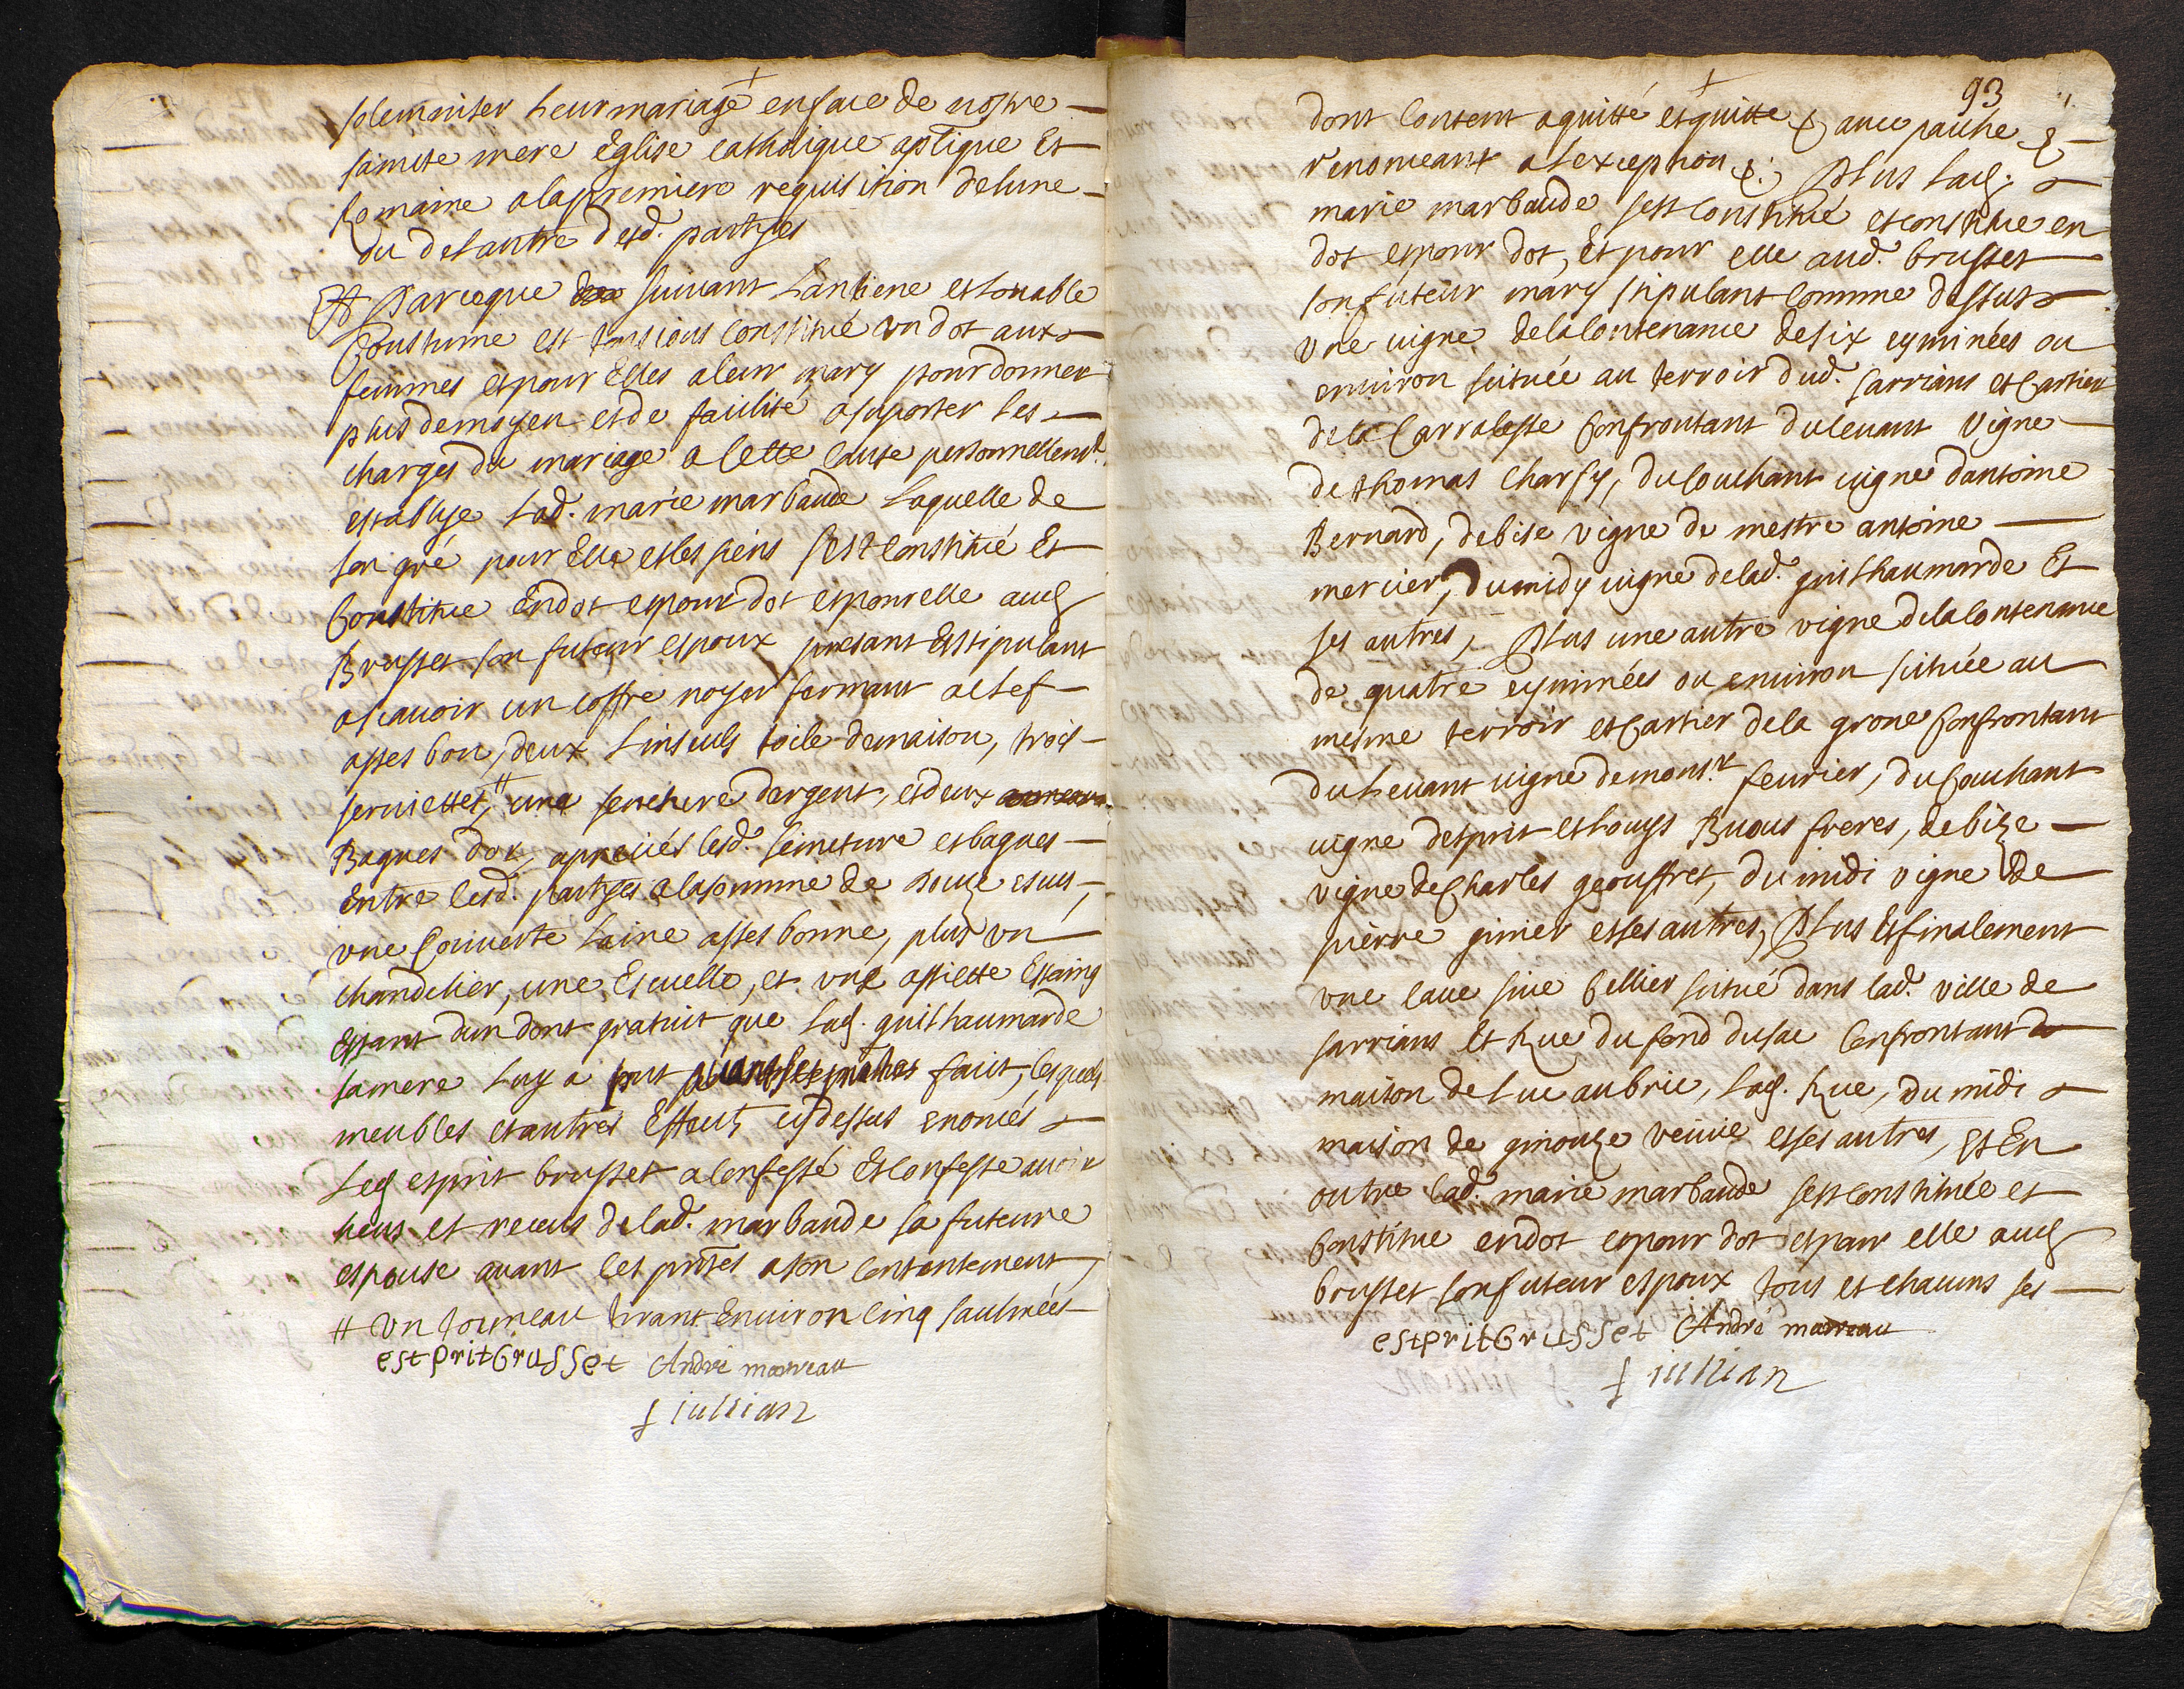 solemniser leur mariage en face de nostre
saincte mere Eglise catholique aptlique Et
Romaine a la premiere requisition de lune
ou de lautre desd. partyes
Et Parceque suivant Lantiene et louable
Coustume est tousiours constitué un dot aux
femmes et pour Elles a leur mary pour donner
plus de moyen et de facilité a suporter les
charges du mariage a cette cause personnellemt.
establye lad. marie marbaude laquelle de
son gré pour Elle et les siens sest constitué Et
Constitue En dot et pour dot et pour elle aud.
Brusset son futeur espoux presant Et stipulant
ascavoir un coffre noyer fermant a clef
asses bon, deux linseuls toile de maison, trois
serviettes, # une seincture dargent, et deux
Bagues dor, apreciés lesd. seincture et bagues
Entre lesd. partyes a la somme de douze escus,
une Couverte laine asses bonne, plus un
chandelier, une Escuelle, et une assiette Estaing
Estant dun dont gratuit que lad. guilhaumarde
sa mere luy a fait, lesquels
meubles et autres Effects cy dessus enoncés
Led. esprit brusset a confessé Et confesse avoir
heus et receus de lad. marbaude sa futeure
espouse avant les pntes a son contantement,
# un tonneau tirant Environ cinq saulmées
estprit brusset André moureau
f jullian
93
dont content a quitté et quitte & avec pache &
renonceant a lexception &: Plus lad.
marie marbaude sest constitué et constitue en
dot et pour dot, Et pour elle aud. brusset
son futeur mary stipulant comme dessus
une vigne de la contenance de six eyminées ou
environ scituée au terroir dud. Sarrians et Cartier
de la Carraleste Confrontant du levant vigne
de thomas Charfy, du couchant vigne dantoine
Bernard, de bise vigne de mestre antoine
mercier, du midy vigne de lad. guilhaumarde Et
ses autres, Plus une autre vigne de la contenance
de quatre eyminées ou environ scituée au
mesme terroir et Cartier de la grone Confrontant
du levant vigne de monsr. fevrier, du Couchant
vigne desprit et louys Buous freres, de bize
vigne de Charles geouffret, du midi vigne de
pierre ginier et ses autres, Plus Et finalement
une cave sive Cellier scitué dans lad. ville de
sarrians Et Rue du fond du sac Confrontant de
maison de Luc aubric, lad. Rue, du midi
maison de ginouze veuve et ses autres, Et En
outre lad. marie marbaude sest constituée et
Constitue en dot et pour dot et pour elle aud.
brusset son futeur espoux tous et chacuns ses
estprit brusset André moureau
f jullian